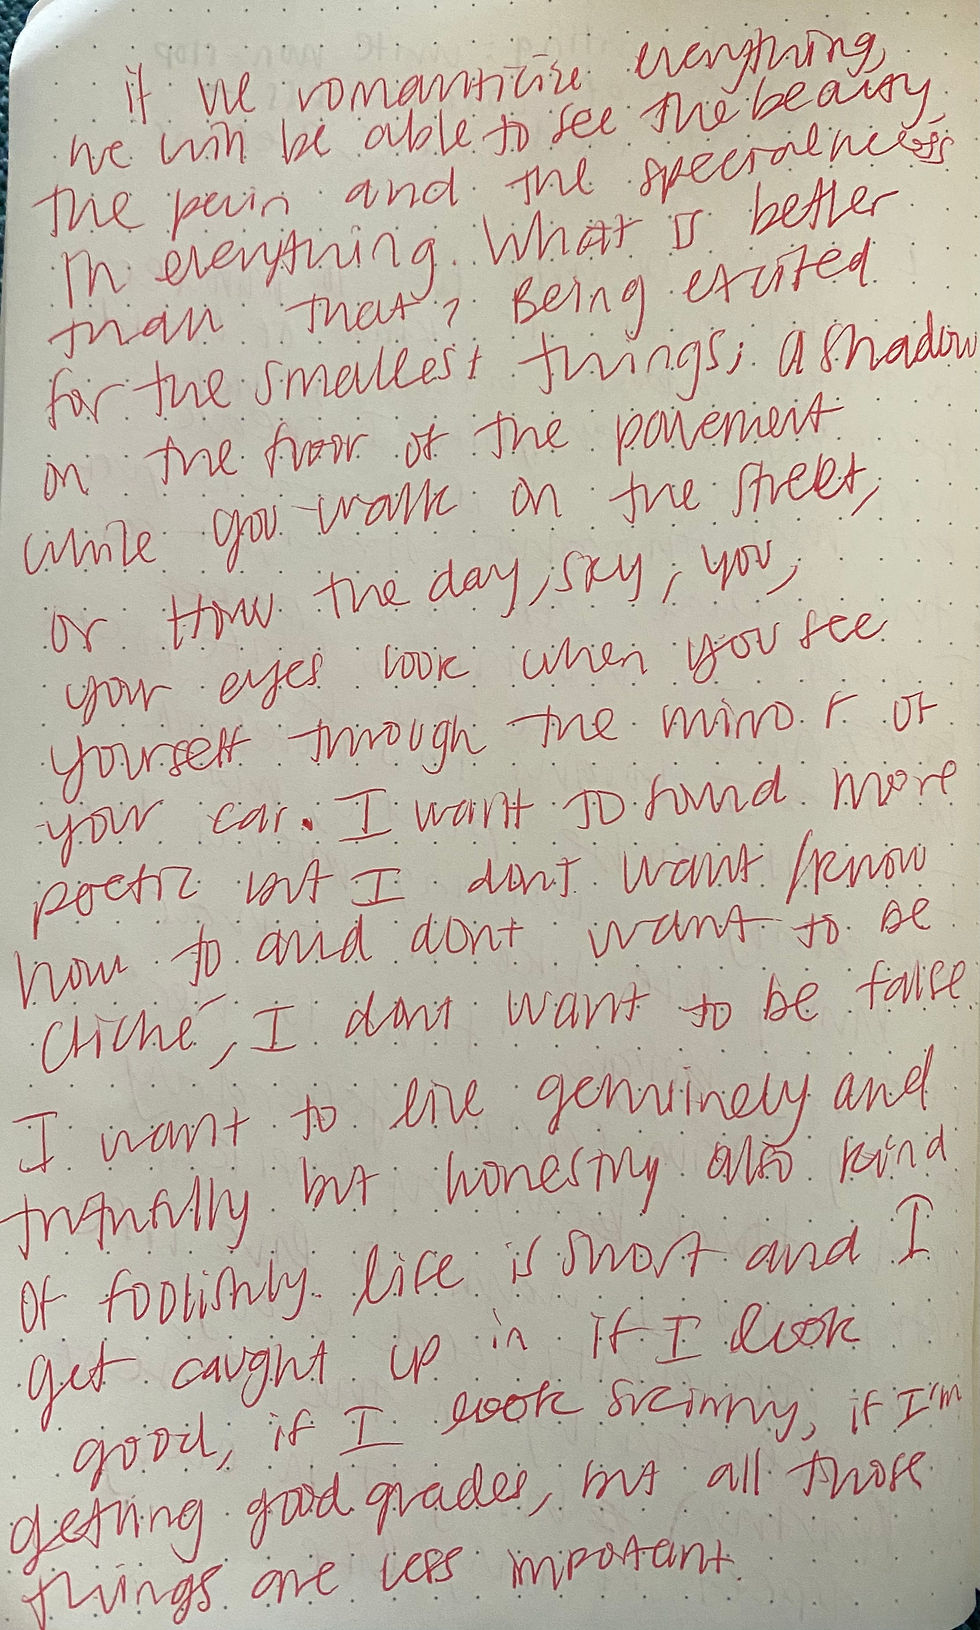 if we romanticize everything,
we will be able to see the beauty,
the pain and the specialness
in everything. What is better
than that? Being excited
for the smallest things; a shadow
on the floor of the pavement
while you walk on the street,
or How the day, sky, you,
your eyes look when you see
yourself through the mirror of
your car. I want to sound more
poetic but I dont want/know
how to and dont want to be
cliché, I dont want to be false
I want to live genuinely and
truthfully but honestny also kind
of foolishly. life is short and I
get caught up in if I look
good, if I look skinny, if I'm
getting good grades, but all those
things are less impotant.